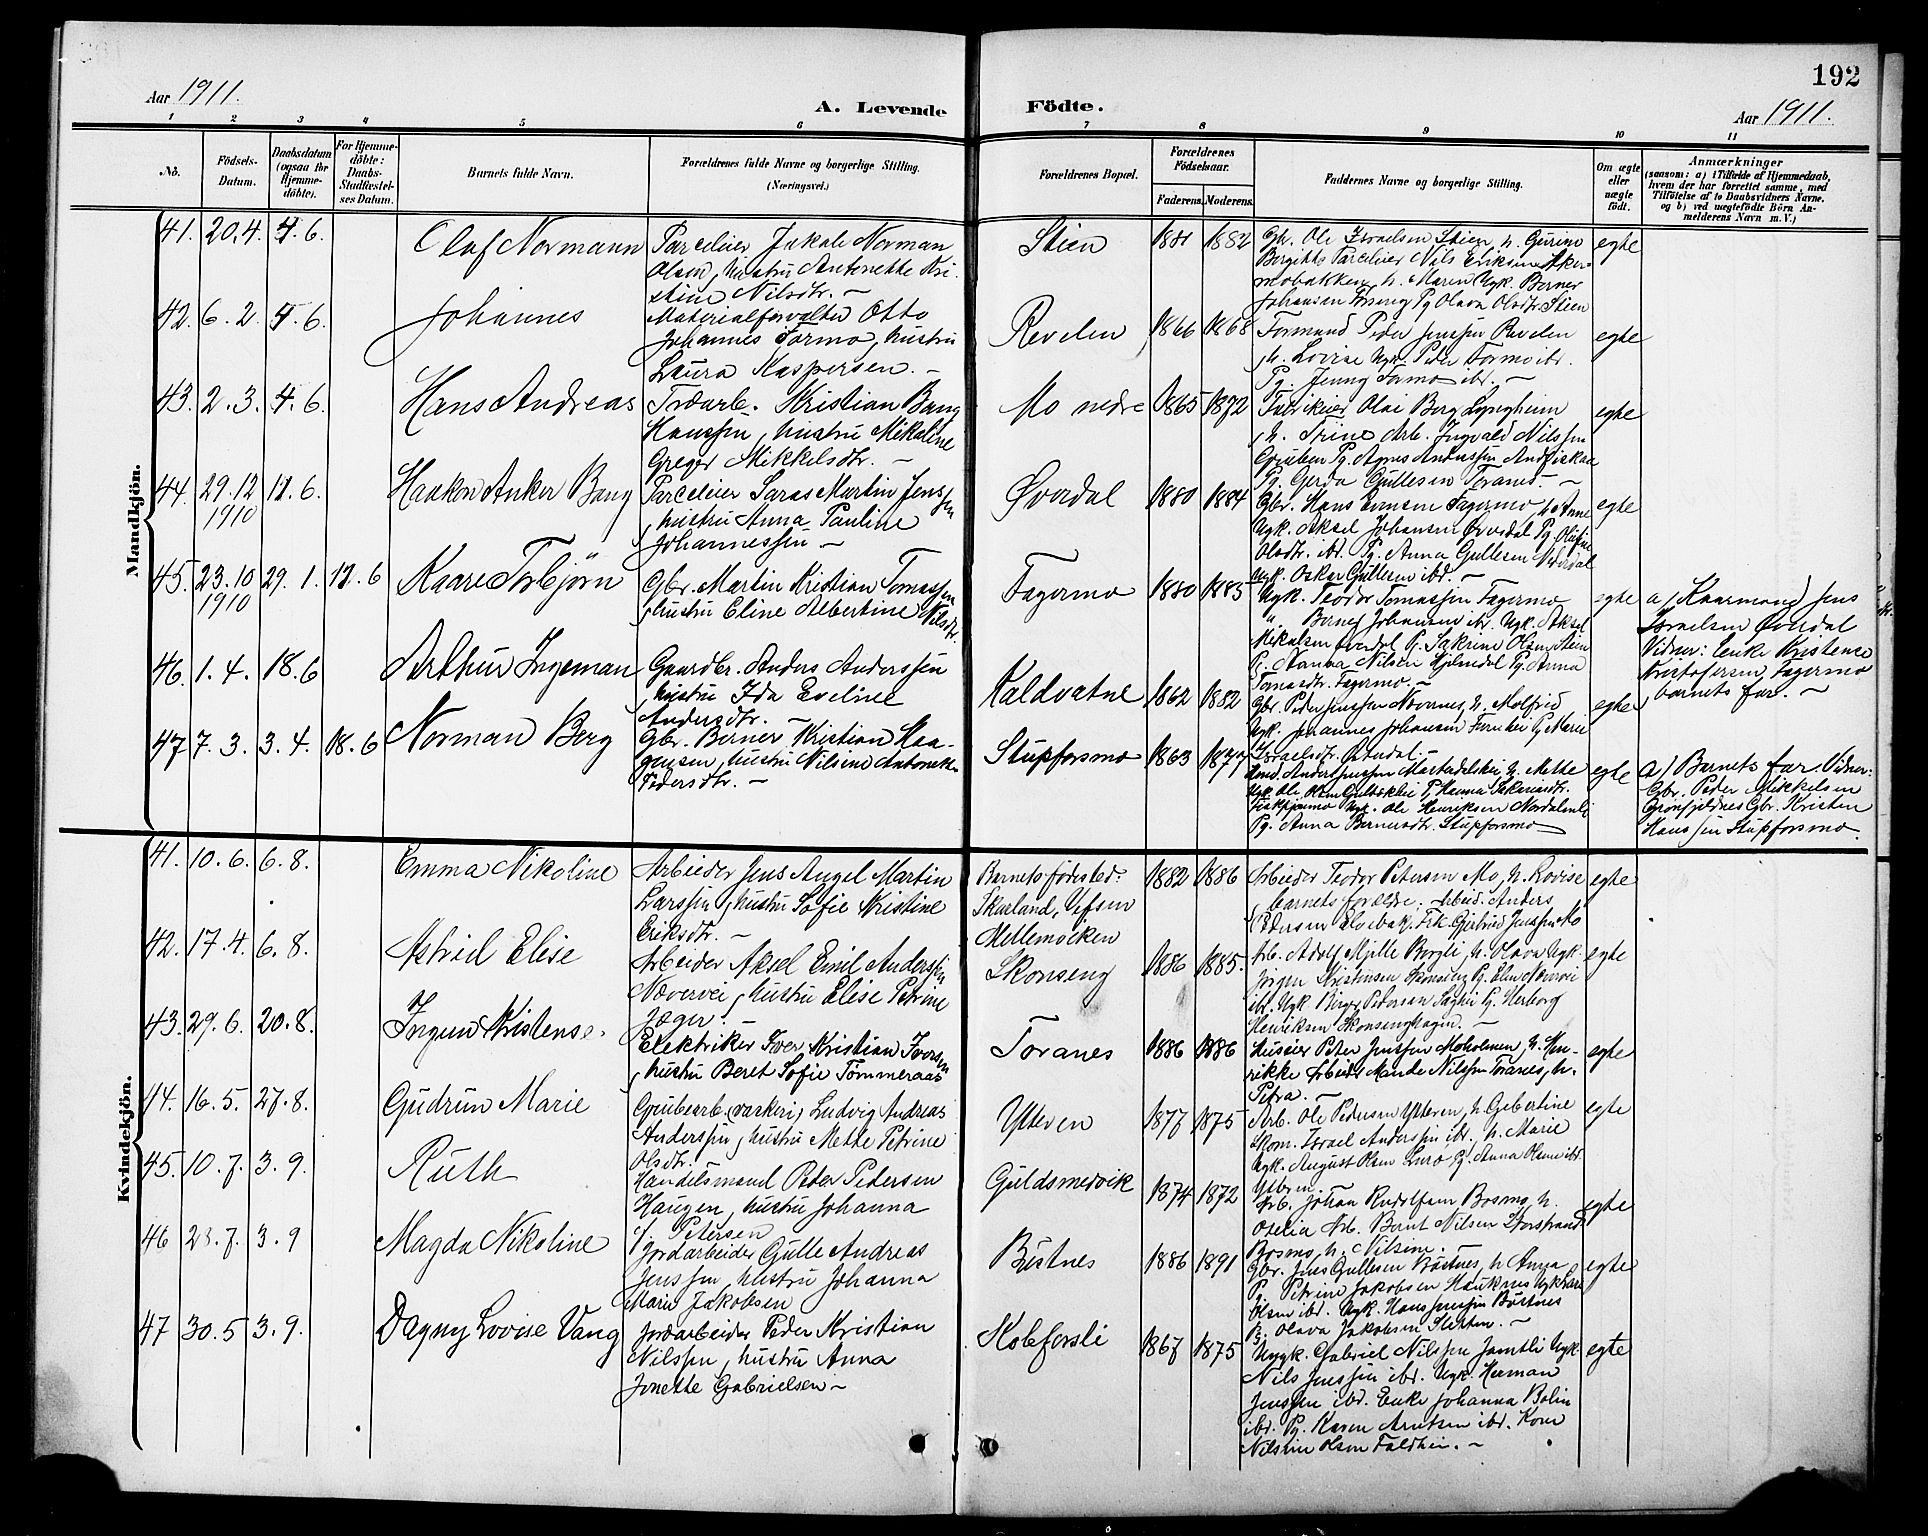 192
Aar 1911.
A. Levende Födte.
Aar 1911.
1 2 3 4 5 6 7 8 9 10 11
No.
Födsels-
Datum.
Daabsdatum
(ogsaa for
Hjemme-
döbte).
For Hjemme-
döbte:
Daabs-
Stadfæstel-
ses Datum.
Barnets fulde Navn.
Forældrenes fulde Navne og borgerlige Stilling.
(Næringsvei.)
Forældrenes Bopæl.
Forældrenes
Födselsaar.
Faderens. Moderens.
Faddernes Navne og borgerlige Stilling.
Om ægte
eller
uægte
født.
Anmærkninger
(saasom: a) i Tilfælde af Hjemmedaab,
hvem der har forrettet samme, med
Tilföielse af to Daabsvidners Navne,
og b) ved uægtefödte Börn An-
melderens Navn m. V.)
Mandkjön.
41. 20.4. 4.6. Olaf Normann
Parcelier Jakob Norman
Olsen, hustru Antonette Kri-
stine Nilsdtr. –
Stien 1881 1882
Gbr. Ole Israelsen Stien, h. Gurine
Bergitte Parcelier Nils Eriksen Aker-
mobakken, h. Maren Ugk. Berner
Johansen Pg. Olava Olsdtr. Stien
egte
42. 6.2. 4.6. Johannes
Materialforvalter Otto
Johannes Formo, hustru
Laura Kaspersen. –
Revelen 1866 1868
Formand Peder Jenssen Revelen
h. Lovise Ugk. Peder Formo ibr.
Pg. Jenny Formo ibr. –
egte
43. 2.3. 4.6. Hans Andreas
Træarb. Kristian Bang
Hanssen, hustru Mikaline
Greger Mikkelsdtr. –
Mo nedre 1865 1872
Fabrikeier Olai Berg Lyngheim
h. Trine Arb. Ingvald Nilssen
Gruben Pg. Agnes Anderssen Andfiskaa
Pg. Gerda Gullesen Toranes –
egte
44. 29.12 1910 11.6. Haakon Anker Bang
Parcelier Laras Martin Jenssen
hustru Anna Pauline
Johannessen –
Øverdal 1880 1884
Gbr. Hans Evensen Fagermo h. Anne
Ugk. Aksel Johansen Øverdal Pg. Olufine
Olsdtr. ibd. Pg. Anna Gullesen
Ugk. Oskar Gullesen ibd. –
egte
45. 23.10 1910 29.1. 11.6 Kaare Torbjörn
Gbr. Martin Kristian Tomassen
hustru Eline Albertine Nilsdtr.
Fagermo 1880 1885
Ugk. Teodor Tomassen Fagermo
" Berner Johansen ibr. Ugk. Aksel
Mikalsen Øverdal Pg. Sakrine Olsen Stien
Pg. Hanna Nilsen Hjelmdal Pg. Anna
Tomasdtr. Fagermo. –
egte
a) (Kaarmand) Jens
Israelsen Øverdal
Vidner: Enke Kristense
Kristofersen, Fagermo
barnets far. –
46. 1.4. 18.6 Arthur Ingeman
Gaardbr. Anders Anderssen
hustru Ida Eveline
Andersdtr. –
Kaldvatne 1862 1882
Gbr. Peder Jenssen Nævernes, h. Molfrid
Ugk. Johannes Johansen Pg. Marie
Israelsdtr.
egte
47 7.3. 3.4. 18.6 Norman Berg
Gbr. Berner Kristian Haa-
gensen, hustru Nilsine Antonette
Pedersdtr. –
Stupforsmo 1863 1877
Anders Jenssen h. Mette
Pg. Hanna Sakariasdtr.
Ugk. Ole Henriksen Nordalenli
Pg. Anna Bernersdtr. Stupforsmo
egte
a) Barnets far. Vidner:
Gbr. Peder Mikkelsen
Grønfjeldnes Gbr. Kristen
Hanssen Stupforsmo.
Kvindekjön.
41. 10.6. 6.8. Emma Nikoline
Arbeider Jens Angel Martin
Larssen, hustru Sofie Kristine
Eriksdtr. –
Barnets fødested:
Skarland, Vefsen
Mellemoeken
1882 1886
Arbeider Teodor Petersen Mo, h. Rovise
barnets forældre. Arbeid. Anders
Pedersen Elvebak. Frk. Gjertrud Jenssen Mo
egte
42. 17.4. 6.8. Astrid Elise
Arbeider Aksel Emil Anderssen
Nævervei, hustru Elise Petrine
Jæger.
Skonseng 1886 1885.
Arb. Adolf Mjølle Borgli, h. Olava Ugk.
Jörgen Kristensen Skonseng Pg. Elen Nævervei
ibr. Ugk. Birger Pedersen Pg. Herborg
Henriksen Skonsenghagen. –
egte
43. 29.6. 20.8. Ingun Kristense.
Elektriker Iver Kristian Iversen
hustru Beret Sofie Tömmeraas
Toranes 1886 1886
Husier Peter Jenssen Moholmen, h. Hen-
rikke Arbeid. Mande Nilssen Toranes, h.
Petra. –
egte
44. 16.5. 27.8. Gudrun Marie
Grubearb. (vaskeri) Ludvig Andreas
Anderssen, hustru Mette Petrine
Olsdtr.
Ytteren 1877 1875
Arb. Ole Pedersen Ytteren, h. Gebertine
Skom. Israel Anderssen ibr., h. Marie
Ugk. August Olsen Lurö Pg. Anna Olsen ibr.
Ytteren –
egte
45. 10.7. 3.9. Ruth
Handelsmand Peter Pedersen
Haugen, hustru Johanna
Petersen
Guldsmedvik 1874 1872
Arb. Johan Rudolfsen Bosmo, h.
Otelia Arb. Bernt Nilsen Storstrand
Bosmo, h. Nilsine.
egte
46 28.7. 3.9 Magda Nikoline
Jordarbeider Gulle Andreas
Jenssen, hustru Johanna
Marie Jakobsen
Büstnes 1886 1891
Gbr. Jens Gullesen Büstnes, h. Anna
Pg. Petrine Jakobsen Hauknes Ugk. Lars
Olsen ibr. Ugk. Hans Jenssen Büstnes
Pg. Olava Jakobsen –
egte
47 30.5 3.9. Dagny Lovise Vang
Jordarbeider Peder Kristian
Nilssen, hustru Anna
Jonette Gabrielsen –
Koleforsli 1867 1875
Ungk. Gabriel Nilssen Jamtli Ugk.
Nils Jenssen ibr. Ugk. Herman
Jenssen ibr. Enke Johanna Bolin
ibr. Pg. Karen Arntsen ibr. Kone
Nilsine Olsen –
egte